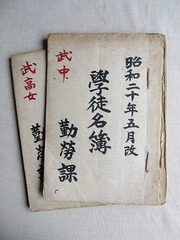 昭和二十年五月改
學徒名簿
武中
勤勞課
武高女
勤